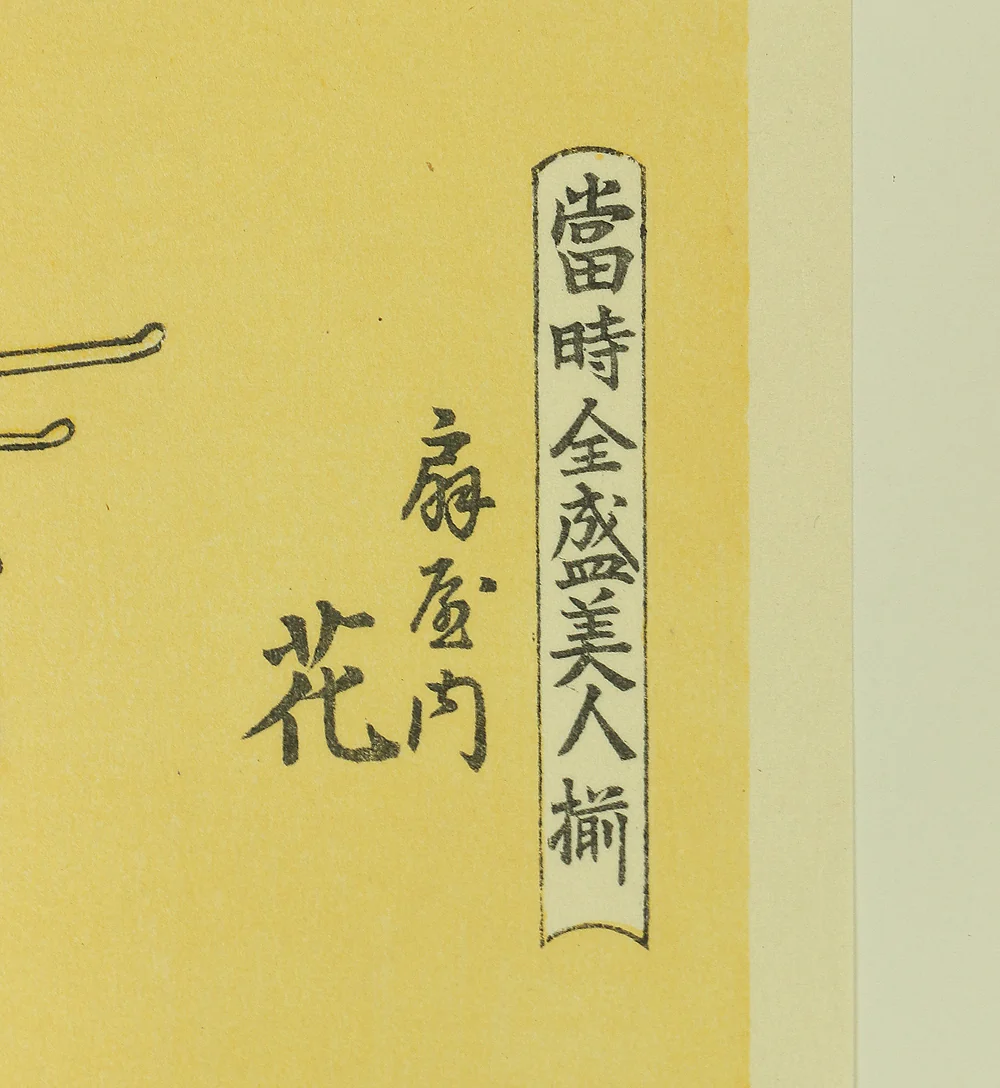 當時全盛美人揃
扇屋内
花